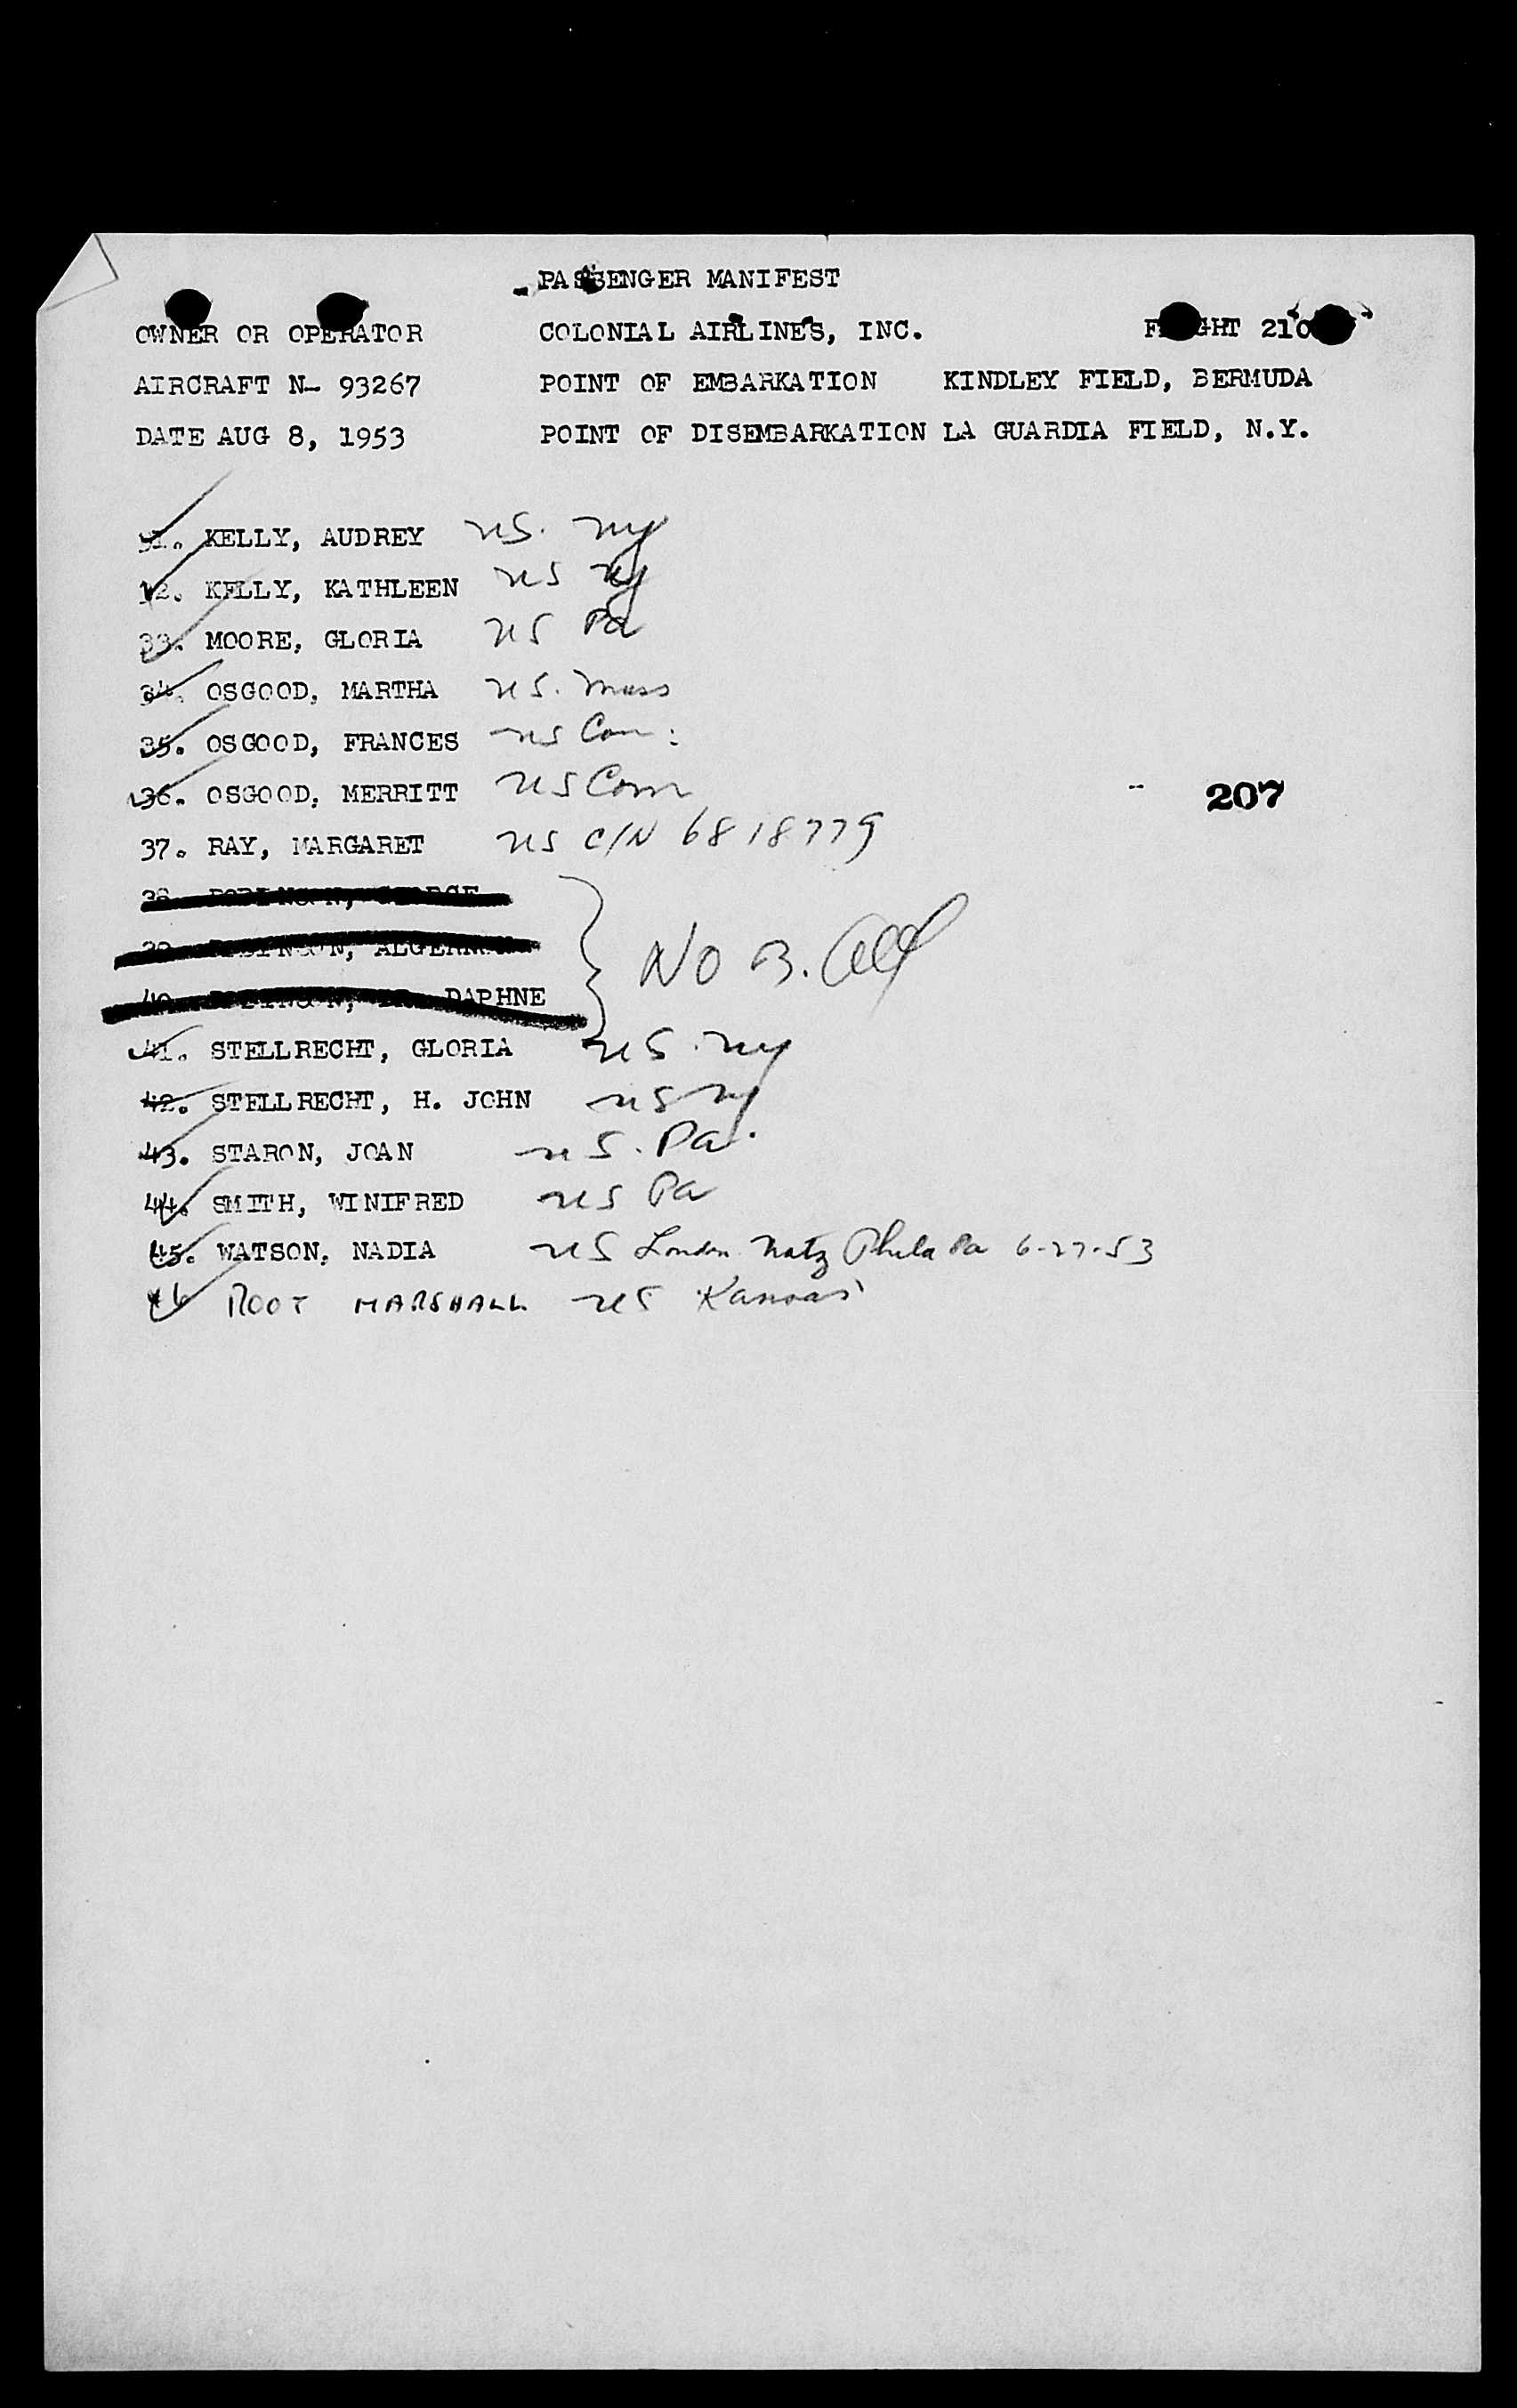 PASSENGER MANIFEST
OWNER OR OPERATOR COLONIAL AIRLINES, INC. FLIGHT 210
AIRCRAFT N- 93267 POINT OF EMBARKATION KINDLEY FIELD, BERMUDA
DATE AUG 8, 1953 POINT OF DISEMBARKATION LA GUARDIA FIELD, N.Y.
31. KELLY, AUDREY US. NY
32. KELLY, KATHLEEN US NY
33. MOORE, GLORIA US Pa
34. OSGOOD, MARTHA US. Mass
35. OSGOOD, FRANCES US Con:
36. OSGOOD, MERRITT US Conn
207
37. RAY, MARGARET US C/N 6818779
38. ROBINSON, GEORGE
39. ROBINSON, ALGERNON
NO B.
40. ROBINSON, DAPHNE
41. STELLRECHT, GLORIA US. NY
42. STELLRECHT, H. JOHN US NY
43. STARON, JOAN US. Pa.
44. SMITH, WINIFRED US Pa
45. WATSON, NADIA US London Natz Phila Pa 6-27-53
46 ROOT MARSHALL US Kansas